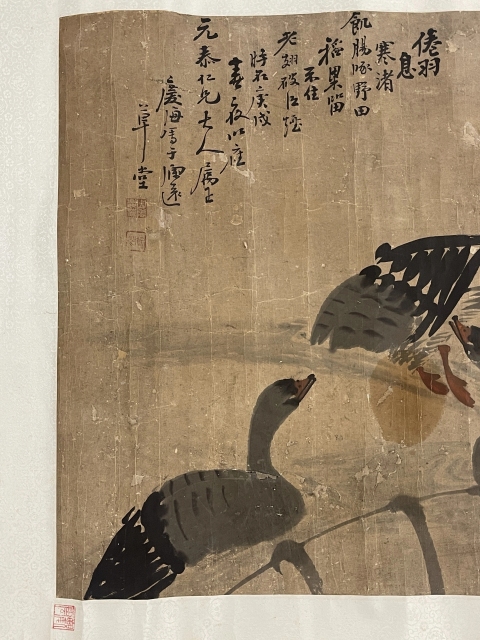 倦羽息
寒渚
飢腸啄野田
稻粱留
不住
老翅破江烟
時在庚戌
春夜以應
元恭仁兄大人屬正
草堂